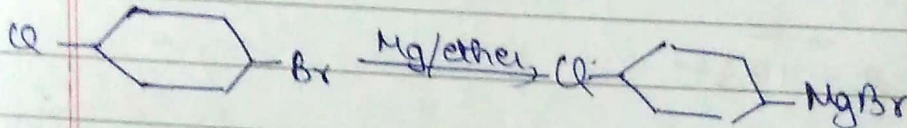 Cl Br Mg/ether Cl MgBr